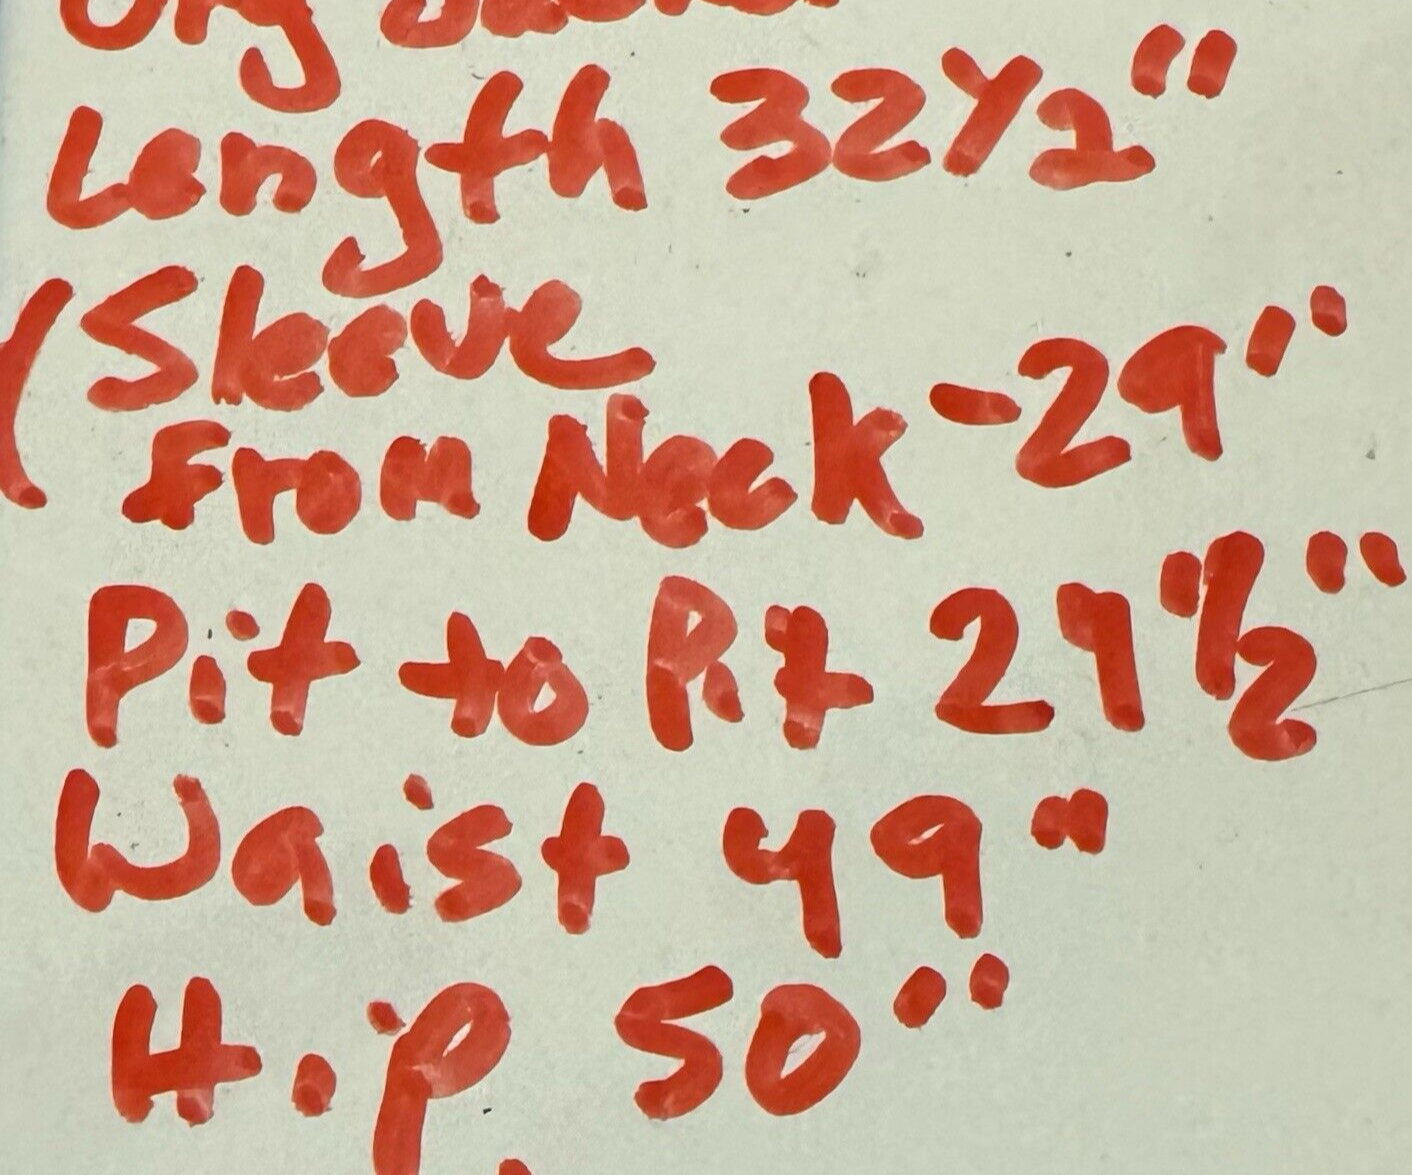 Length 32 1/2"
(Sleeve
From Neck - 29"
Pit to Pit 24 1/2"
Waist 49"
Hip 50"